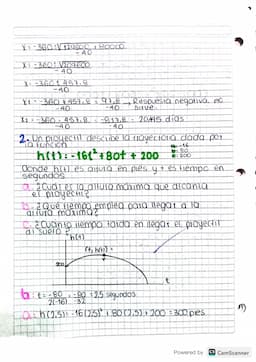 X = -360 ± √129600 + 80000
-40
X = -360 ± √209600
-40
X = -360 ± 457.8
-40
X1 = -360 + 457.8 = 97.8 → Respuesta negativa, no
-40 -40 sirve.
X2 = -360 - 457.8 = -817.8 = 20.445 días
-40 -40
2. Un proyectil describe la trayectoria dada por
la función
h(t) = -16t² + 80t + 200
a = -16
b = 80
c = 200
Donde h(t) es altura en pies y t es tiempo en
segundos
a. ¿Cuál es la altura máxima que alcanza
el proyectil?
b. ¿Qué tiempo emplea para llegar a la
altura máxima?
c. ¿Cuánto tiempo tarda en llegar el proyectil
al suelo?
h(t)
(t, h(t))
200
t
b. t = -80 = -80 = 2.5 segundos
2(-16) -32
a. h(2.5) = -16(2.5)² + 80(2.5) + 200 = 300 pies
Powered by CS CamScanner